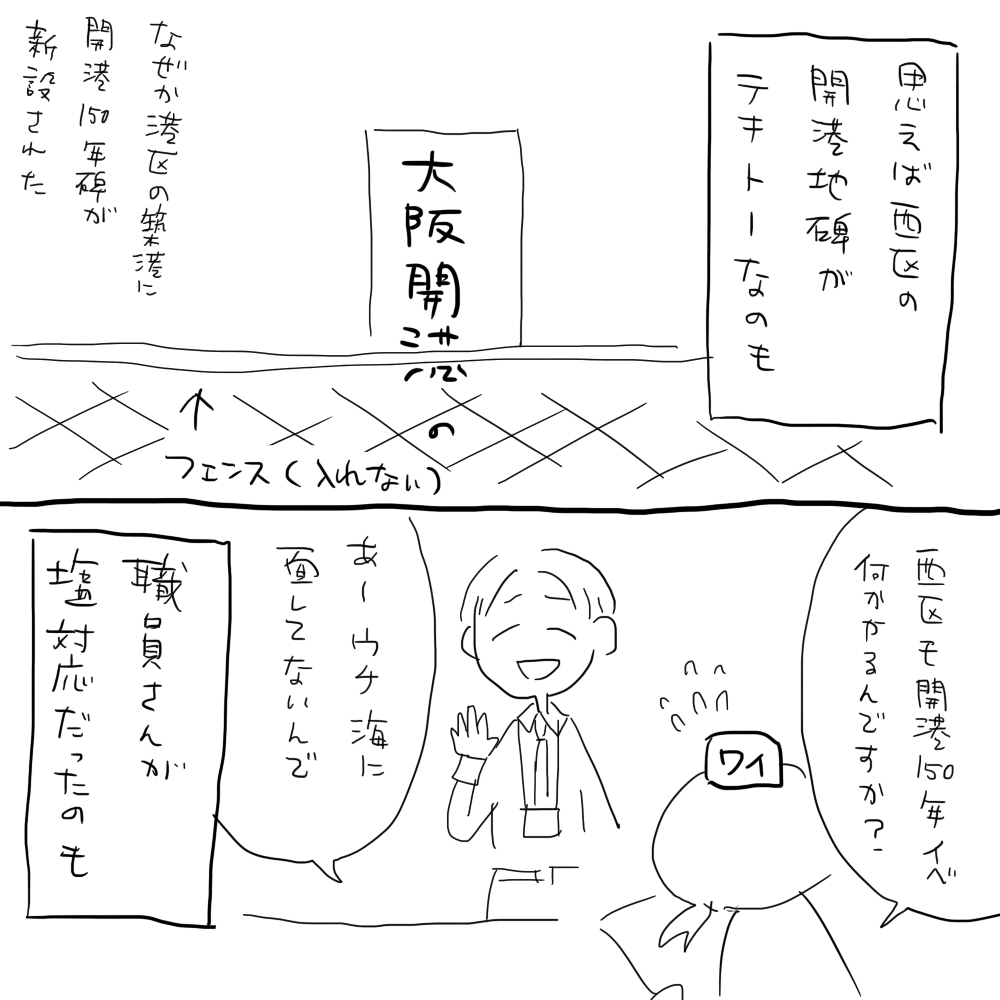 思えば西区の
開港地碑が
テキトーなのも
大阪開港の
なぜか港区の築港に
開港150年碑が
新設された
↑
フェンス(入れない)
西区も開港150年イベ
何かやるんですか?
ワイ
あーウチ海に
面してないんで
職員さんが
塩対応だったのも